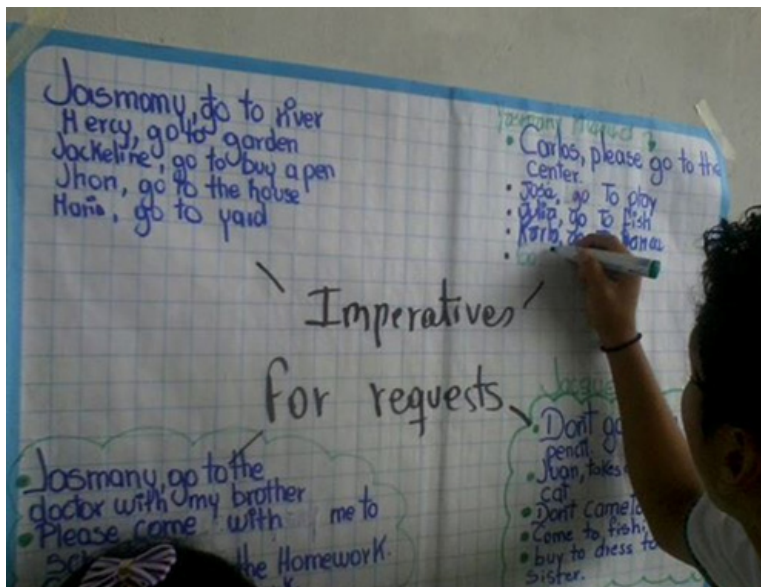 Jasmamy, go to river
Mercy, go to garden
Jackeline, go to buy a pen
Jhon, go to the house
Maria, go to yard
Carlos, please go to the
center.
José, go To play
go To fish
Karla,
Imperatives
for requests
Jasmany, go to the
doctor with my brother
Please come with me to
the Homework.
Dont
pencil.
Juan, takes
cat.
Dont come to
Come to fish
buy to dress to
sister.